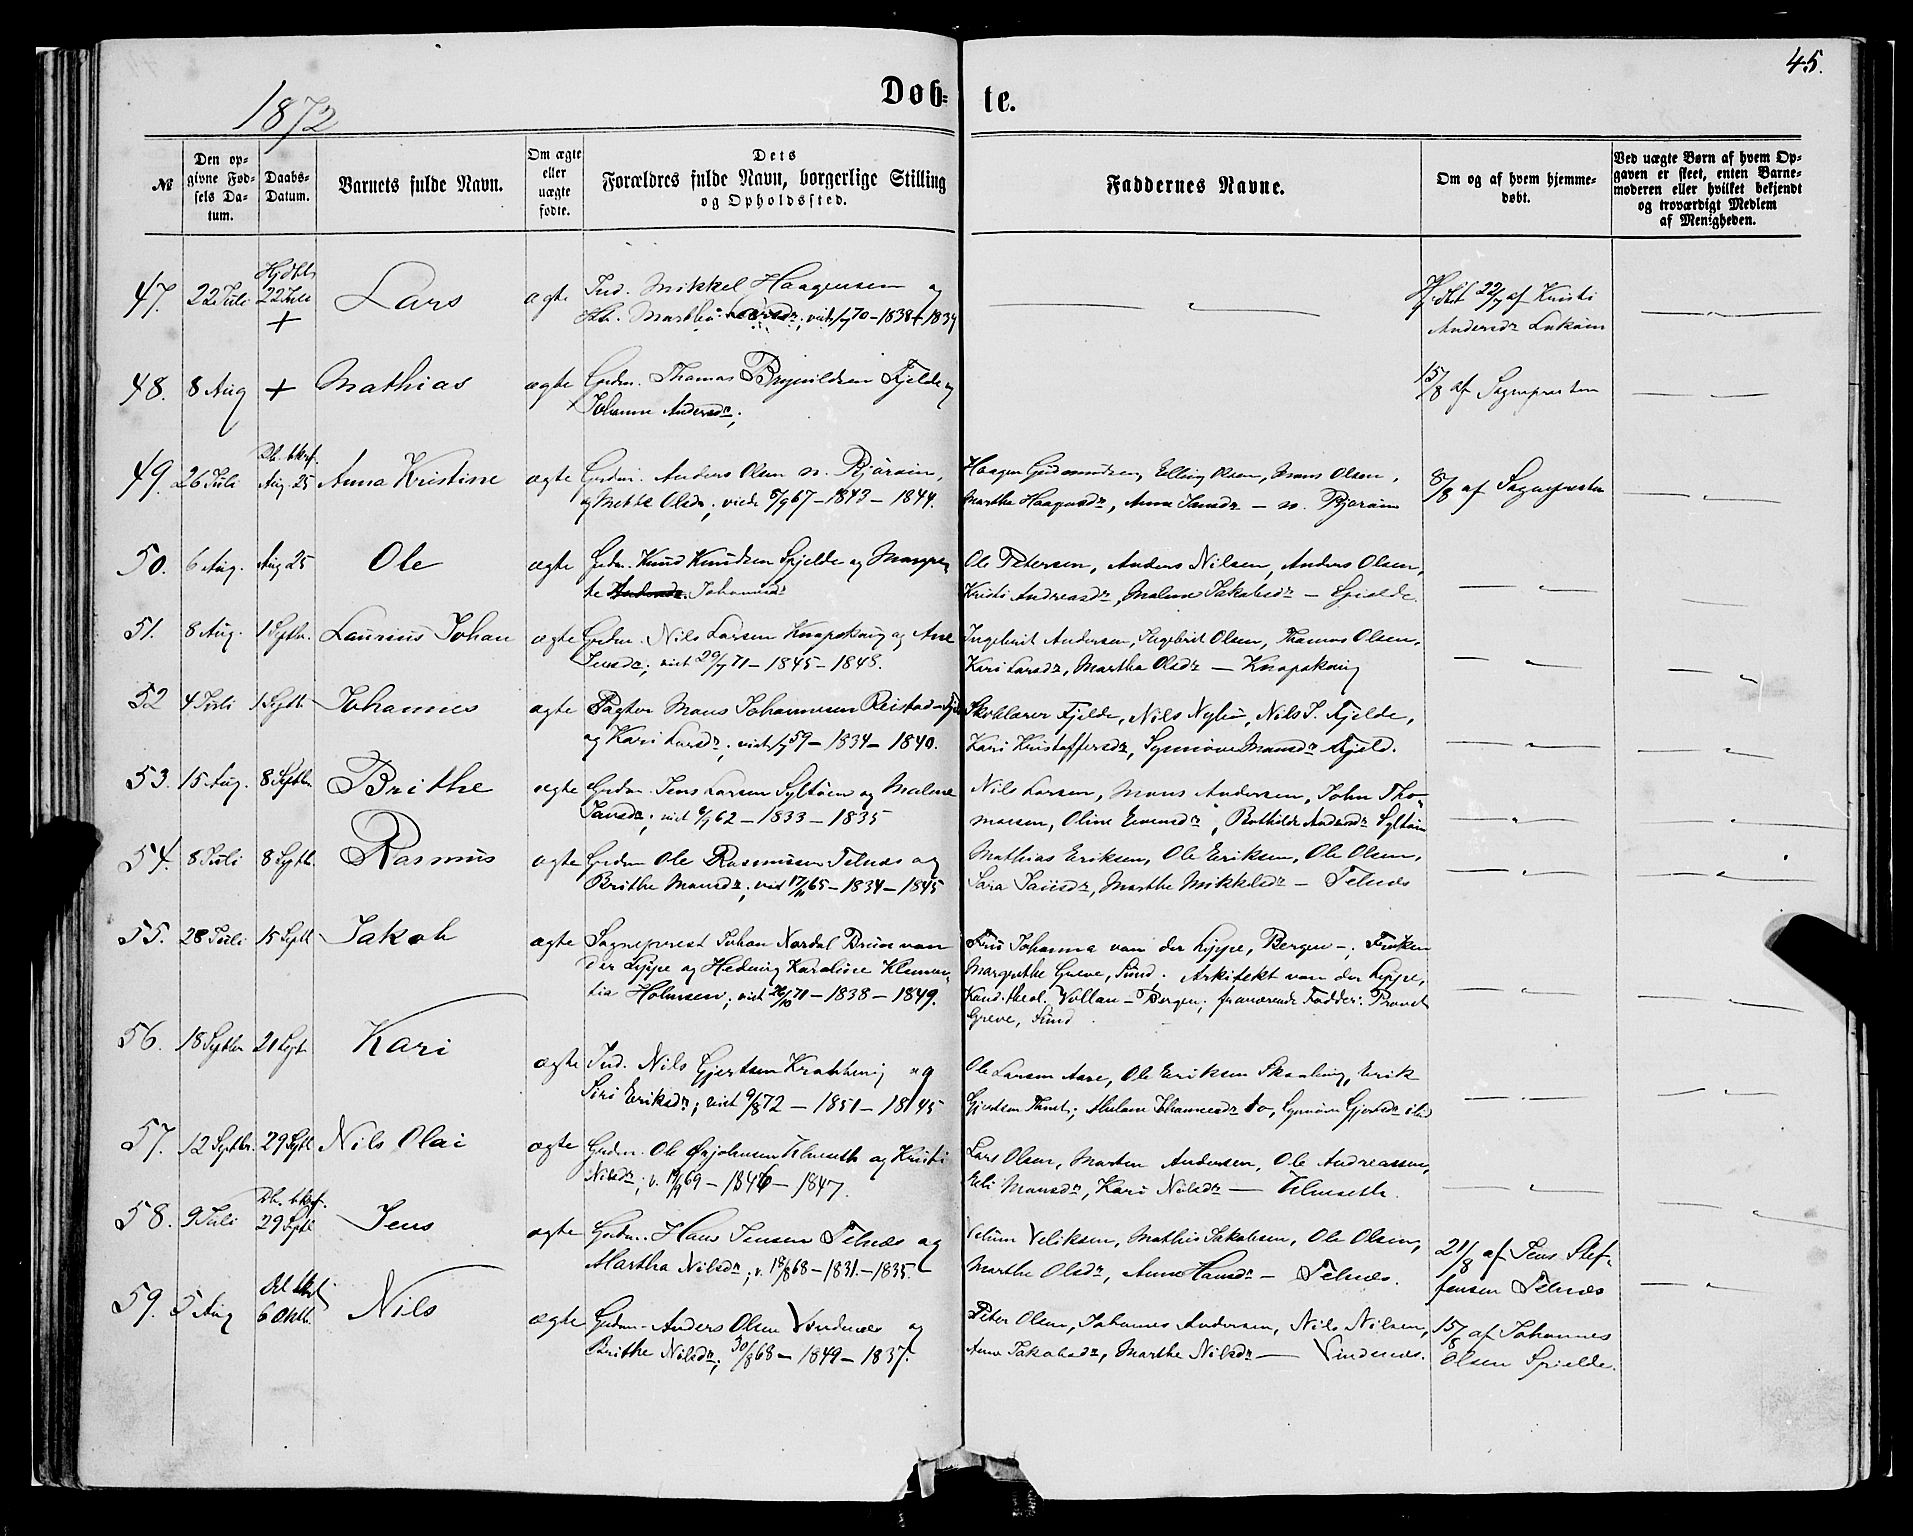 45.
1872
Døb- te.
№
Den opgivne Fødsels Datum.
Daabs-Datum.
Barnets fulde Navn.
Om ægte eller uægte fødte.
Dets Forældres fulde Navn, borgerlige Stilling og Opholdssted.
Faddernes Navne.
Om og af hvem hjemmedøbt.
Ved uægte Børn af hvem Opgaven er skeet, enten Barnemoderen eller hvilket bekjendt og troværdigt Medlem af Menigheden.
47. 22 Juli Hjdbt 22 Juli + Lars ægte Ind. Mikkel Haagensen og
Martha 70 - 1838 + 1834
Hjdbt 22/7 af Kristi
Andersdr
48. 8 Aug + Mathias ægte Grdm. Thomas Brynildsen Fjelde og
Johanne Andersdr;
15/8 af Sognepresten
49. 26 Juli Db. bkrf. Aug 25 Anna Kristine ægte Grdm. Anders Olsen n. Björaün,
og Mette Olsdr; viede 5/9 67 - 1843 - 1844.
Haagen Gudmundsen, Elling Olsen, Mons Olsen,
Marthe Haagensdr, Anna Jansdr - n.
8/8 af Sognepresten
50. 6 Aug. Aug 25 Ole ægte Grdm. Knud Knudsen Spjelde og Margre
te Johannesdr
Ole Petersen, Anders Nilsen, Anders Olsen,
Kristi Andreasdr, Malene Jakobsdr - Spielde.
51. 8 Aug. 1 Septbr. Laurius Johan ægte Grdm. Nils Larsen Knapskoug og Ane
Jensdr; viet 29/7 71 - 1845 - 1848.
Ingebrit Andersen, Ingebrit Olsen, Thomas Olsen,
Kari Larsdr, Martha Olsdr - Knapskoug
52 4 Juli 1 Septb. Johannes ægte Pagter Mons Johannesen Reistad
og Kari Larsdr; 59 - 1834 - 1840.
Skolelærer Fjelde, Nils Nylün, Nils J. Fjelde,
Kari Kristoffersdr, Synnöve Monsdr Fjeld.
53. 15 Aug. 8 Septbr. Brithe ægte Grdm. Jens Larsen Syltöen og Malene
Jansdr; viet 6/7 62 - 1833 - 1835
Nils Larsen, Mons Andersen, John Tho-
massen, Oline Evensdr, Bothilde Andersdr Syltöen
54. 8 Juli 8 Septb. Rasmus ægte Grdm Ole Rasmusen Telnæs og
Brithe Monsdr; vied 17/11 65 - 1834 - 1845
Mathias Eriksen, Ole Eriksen, Ole Olsen,
Sara Jansdr, Marthe Mikkelsdr - Telnæs
55. 28 Juli 15 Septb Jakob ægte Sognepræst Johan Nordal Brun van
der Lippe og Hedvig Karoline Klemen-
tia Holmsen; viet 26/10 71 - 1838 - 1849.
Fru Johanna van der Lippe, Bergen -; Frøken
Margrethe Greve, Sund. Arkitekt van der Lippe,
Kand. theol. Vollan - Bergen; fraværende Fadder: Provst
Greve, Sund.
56. 18 Septbr 21 Septr. Kari ægte Ind. Nils Gjertsen Krabbevig og
Siri Eriksdr; viet 9/8 72 - 1851 - 1845
Ole Larsen Aase, Ole Eriksen Skaaleng, Erik
Gjertsen; Johannesdr, Synnöve Gjertsdr ibid
57. 12 Septbr. 29 Septb Nils Olai ægte Grdm. Ole Örjohnsen Ulveseth og Kristi
Nilsdr; v. 19/9 69 - 1846 - 1847.
Lars Olsen, Morten Andersen, Ole Andreassen,
Eli Monsdr, Kari Nilsdr - Ulveseth.
58. 9 Juli Db. bkrf. 29 Septb Jens ægte Grdm. Hans Jensen Telnæs og
Martha Nilsdr; v. 18/8 68 - 1831 - 1835.
Veliksen, Mathis Jakobsen, Ole Olsen,
Marthe Olsdr, Anne Hansdr - Telnæs.
21/8 af Jens Stef-
fensen Telnæs
59. 5 Aug Db bkrf 6 Oktb. Nils ægte Grdm. Anders Olsen Vindenæs og
Brithe Nilsdr; 30/8 68 - 1849 - 1837.
Peter Olsen, Johannes Andersen, Nils Nilsen,
Anne Jakobsdr, Marthe Nilsdr - Vindenæs.
15/8 af Johannes
Olsen Spielde.